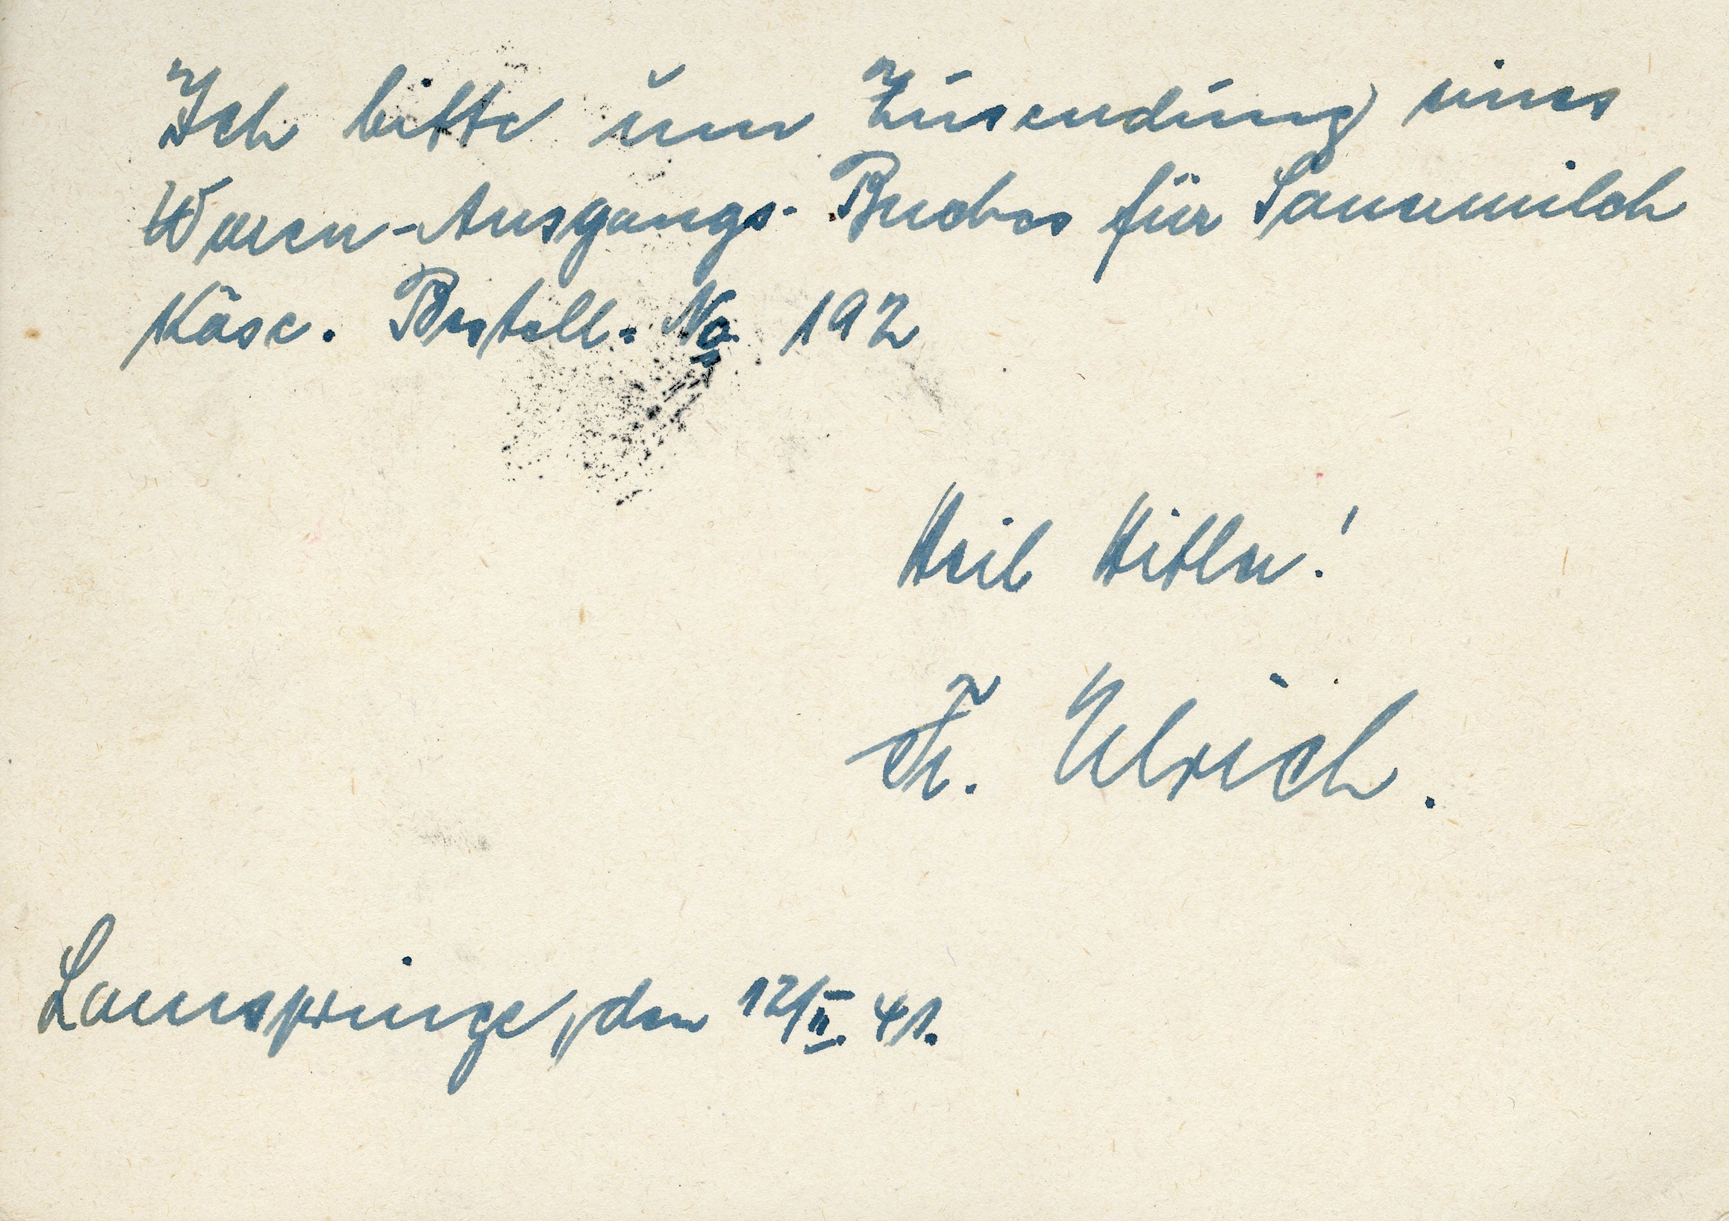 Ich bitte um Zusendung eines
Waren-Ausgangs-Buches für Sauermilch
Käse. Bestell. No 192
Heil Hitler!
Fr. Ulrich.
Lamspringe, den 12/II. 41.